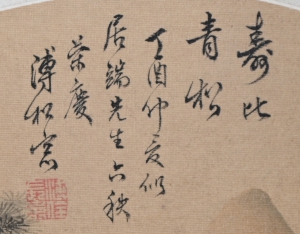 壽比
青松
丁酉仲夏似
居端先生六秩
榮慶
溥松窗